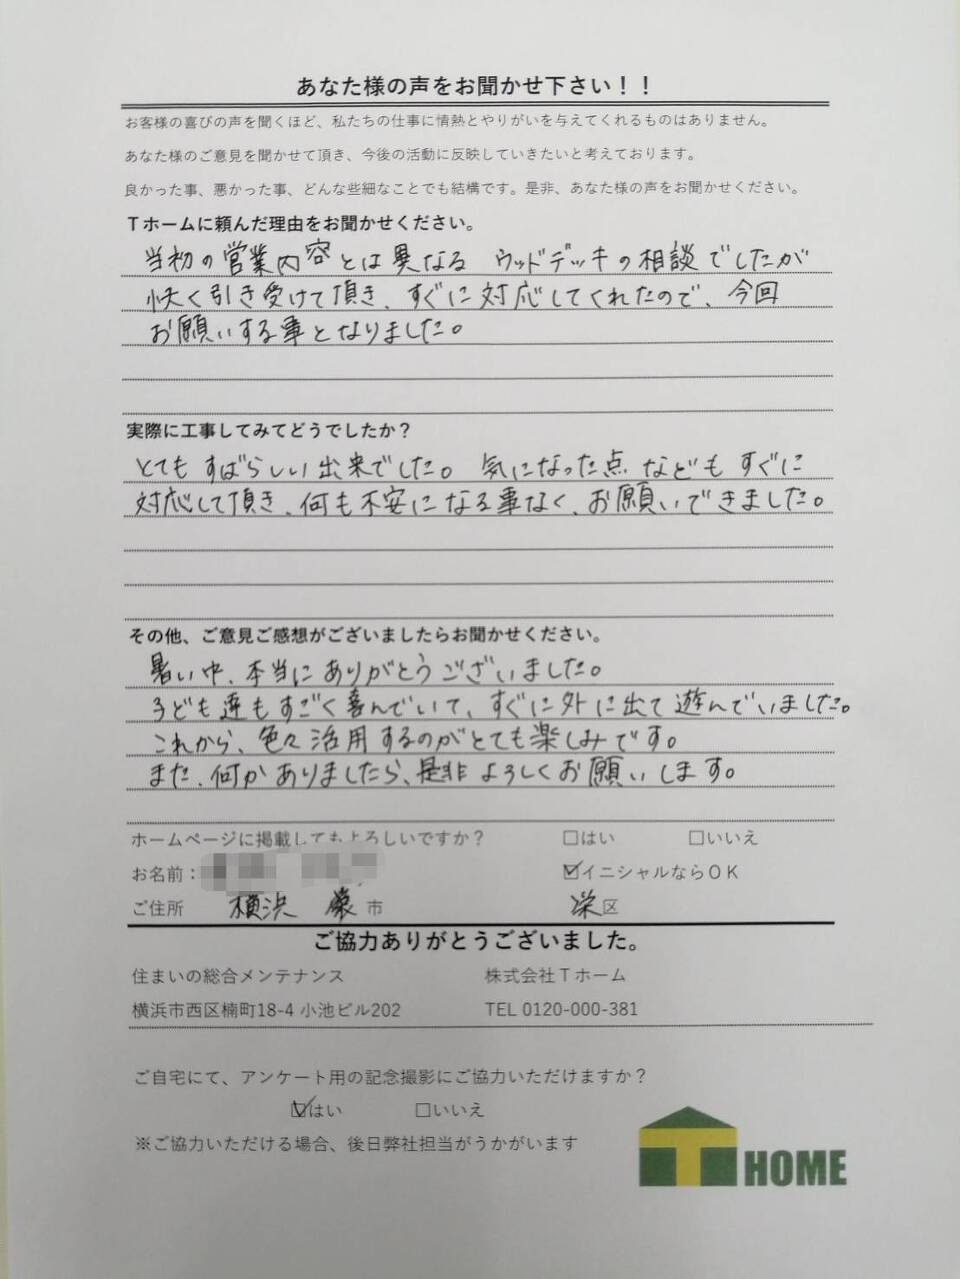 あなた様の声をお聞かせ下さい！！
お客様の喜びの声を聞くほど、私たちの仕事に情熱とやりがいを与えてくれるものはありません。
あなた様のご意見を聞かせて頂き、今後の活動に反映していきたいと考えております。
良かった事、悪かった事、どんな些細なことでも結構です。是非、あなた様の声をお聞かせください。
Ｔホームに頼んだ理由をお聞かせください。
当初の営業内容とは異なる ウッドデッキの相談でしたが
快く引き受けて頂き、すぐに対応してくれたので、今回
お願いする事となりました。
実際に工事してみてどうでしたか？
とても すばらしい出来でした。 気になった点 なども すぐに
対応して頂き、何も不安になる事なく、お願いできました。
その他、ご意見ご感想がございましたらお聞かせください。
暑い中、本当に ありがとうございました。
子ども達もすごく喜んでいて、すぐに外に出て遊んでいました。
これから、色々活用するのがとても楽しみです。
また、何かありましたら、是非 よろしくお願いします。
ホームページに掲載してもよろしいですか？ □はい □いいえ
お名前： ☑イニシャルならＯＫ
ご住所 横浜 市 栄区
ご協力ありがとうございました。
住まいの総合メンテナンス 株式会社Ｔホーム
横浜市西区楠町18-4 小池ビル202 TEL 0120-000-381
ご自宅にて、アンケート用の記念撮影にご協力いただけますか？
☑はい □いいえ
※ご協力いただける場合、後日弊社担当がうかがいます
T HOME